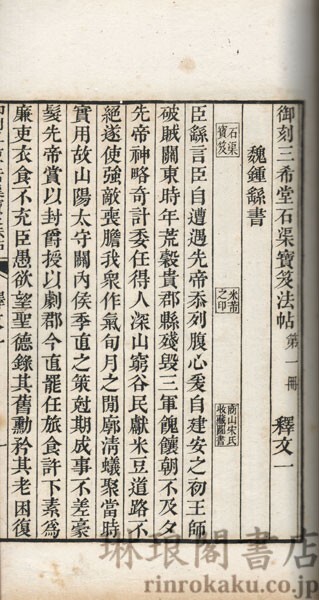 御刻三希堂石渠寶笈法帖 第一冊 釋文一
魏鍾繇書
石渠寶笈 米芾之印 商山宋氏收藏圖書
臣繇言臣自遭遇先帝忝列腹心爰自建安之初王師
破賊關東時年荒穀貴郡縣殘毀三軍餽饟朝不及夕
先帝神略奇計委任得人深山窮谷民獻米豆道路不
絕遂使強敵喪膽我眾作氣旬月之間廓清蟻聚當時
實用故山陽太守關內侯季直之策尅期成事不差豪
髮先帝賞以封爵授以劇郡今直罷任旅食許下素為
廉吏衣食不充臣愚欲望聖德錄其舊勳矜其老困復
琳琅閣書店
rinrokaku.co.jp